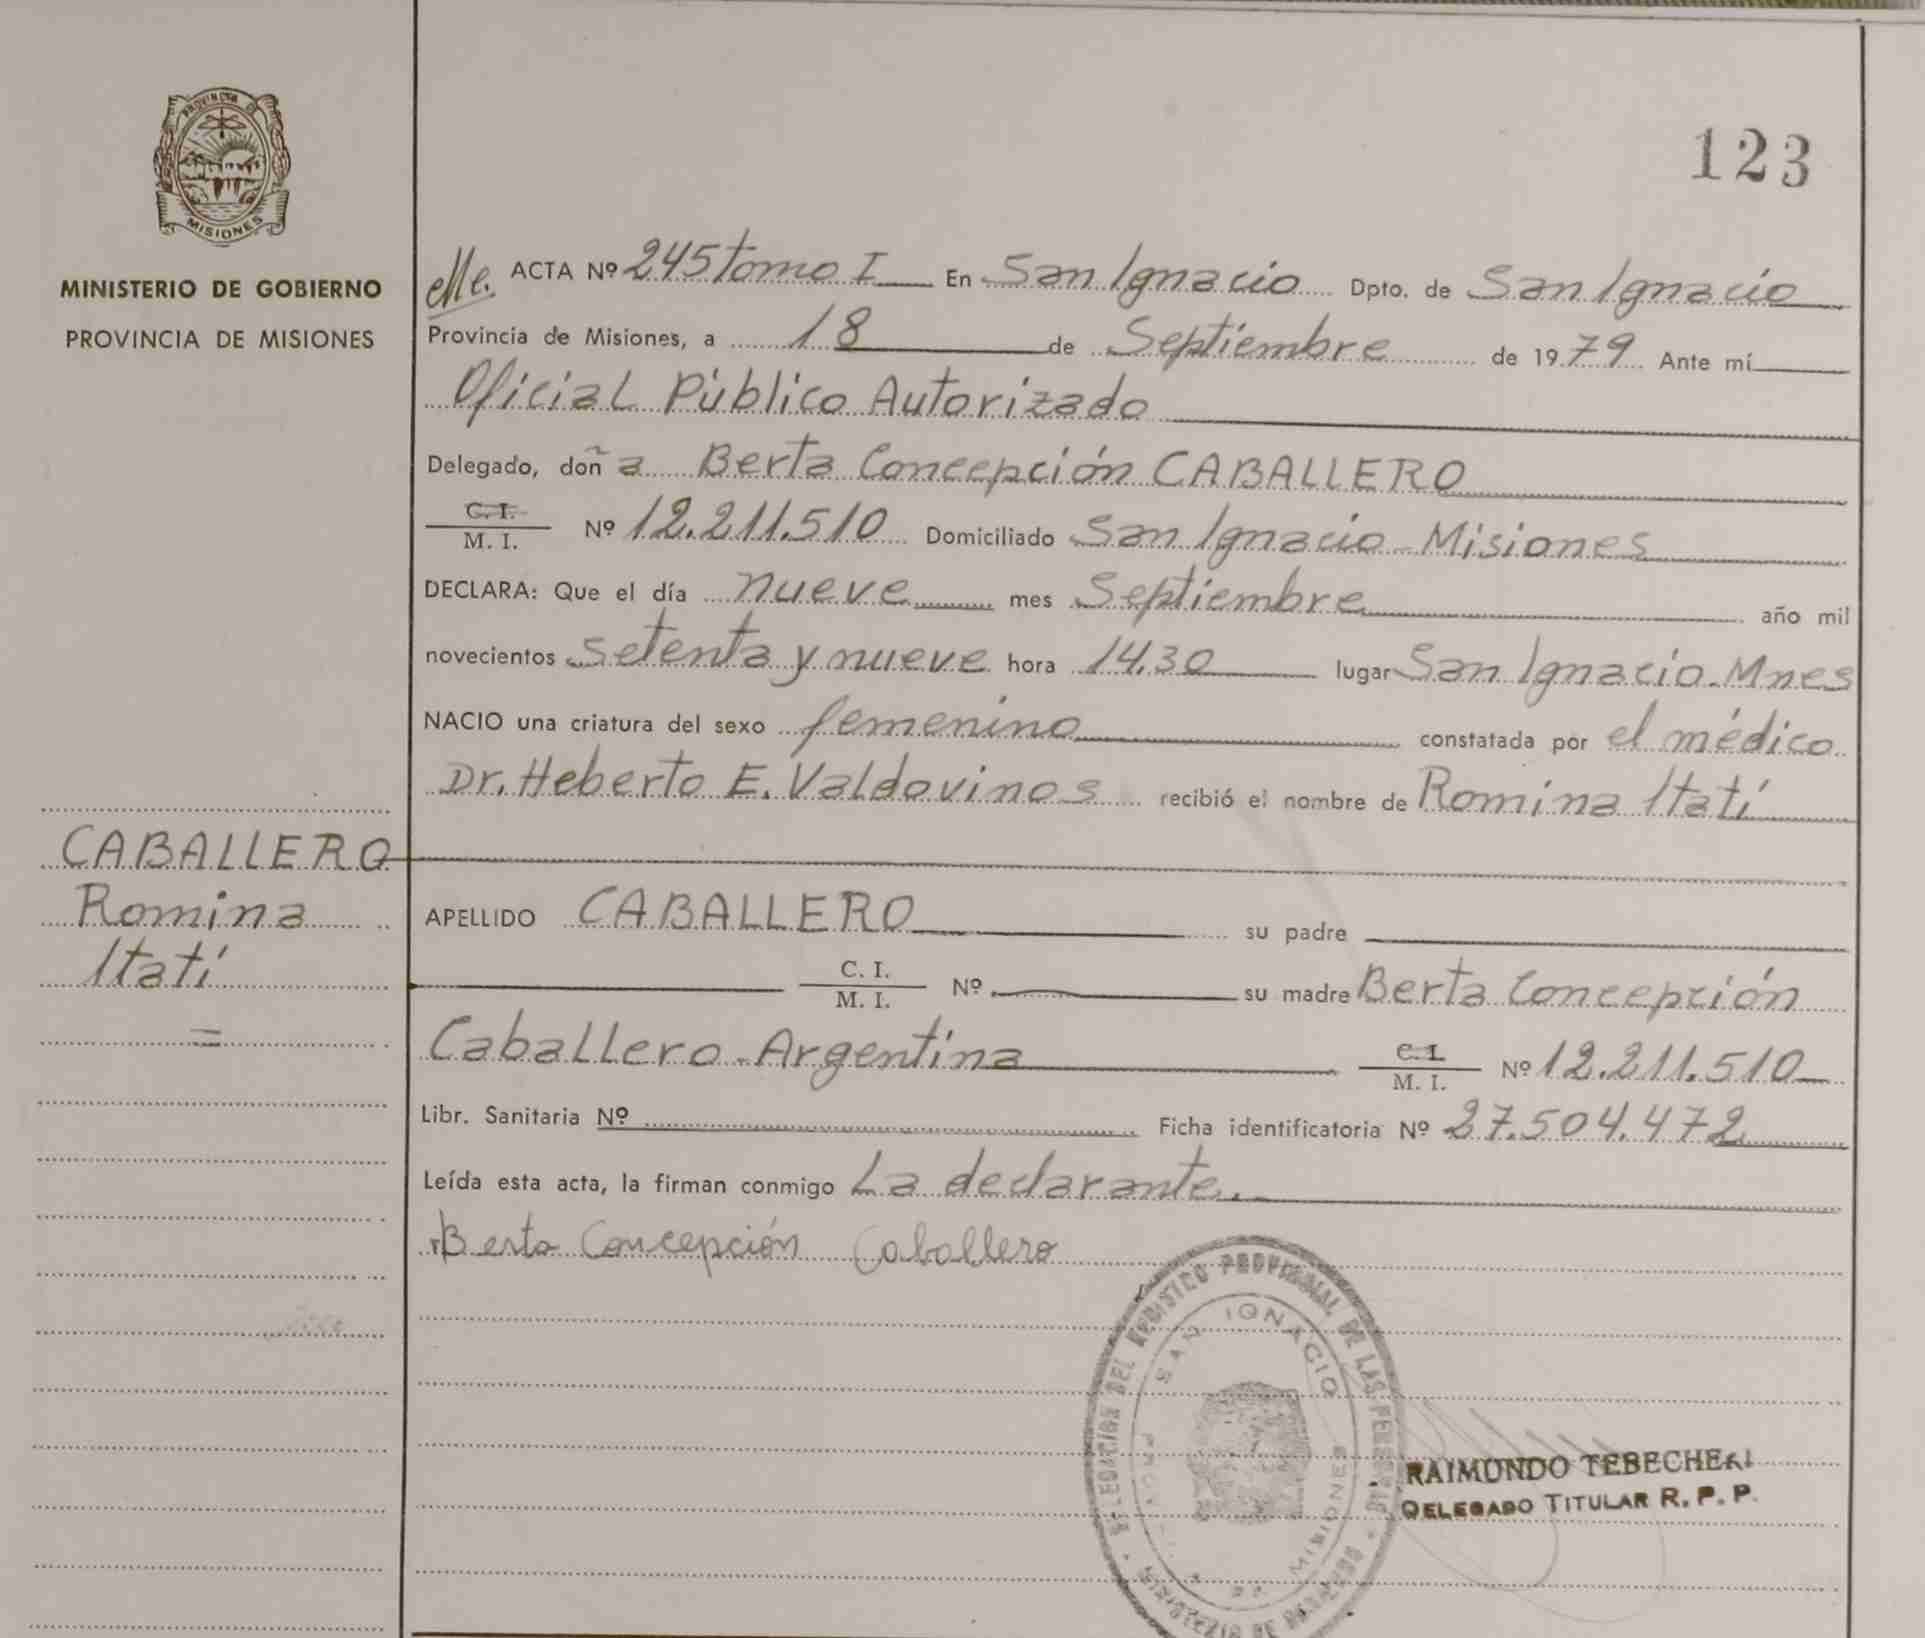 PROVINCIA DE
MISIONES
MINISTERIO DE GOBIERNO
PROVINCIA DE MISIONES
CABALLERO
Romina
Itatí
=
123
ACTA Nº 245 tomo I En San Ignacio Dpto. de San Ignacio
Provincia de Misiones, a 18 de Septiembre de 1979. Ante mí
Oficial Público Autorizado
Delegado, doña Berta Concepción CABALLERO
C. I.
M. I. Nº 12.211.510 Domiciliado San Ignacio - Misiones
DECLARA: Que el día nueve mes Septiembre año mil
novecientos setenta y nueve hora 14.30 lugar San Ignacio - Mnes
NACIO una criatura del sexo femenino constatada por el médico
Dr. Heberto E. Valdovinos recibió el nombre de Romina Itatí
APELLIDO CABALLERO su padre
C. I.
M. I. Nº su madre Berta Concepción
Caballero - Argentina C. I.
M. I. Nº 12.211.510
Libr. Sanitaria Nº Ficha identificatoria Nº 27.504.472
Leída esta acta, la firman conmigo La declarante.
Berta Concepción Caballero
DELEGACION DEL REGISTRO PROVINCIAL DE LAS PERSONAS
SAN IGNACIO
MISIONES
RAIMUNDO
DELEGADO TITULAR R. P. P.